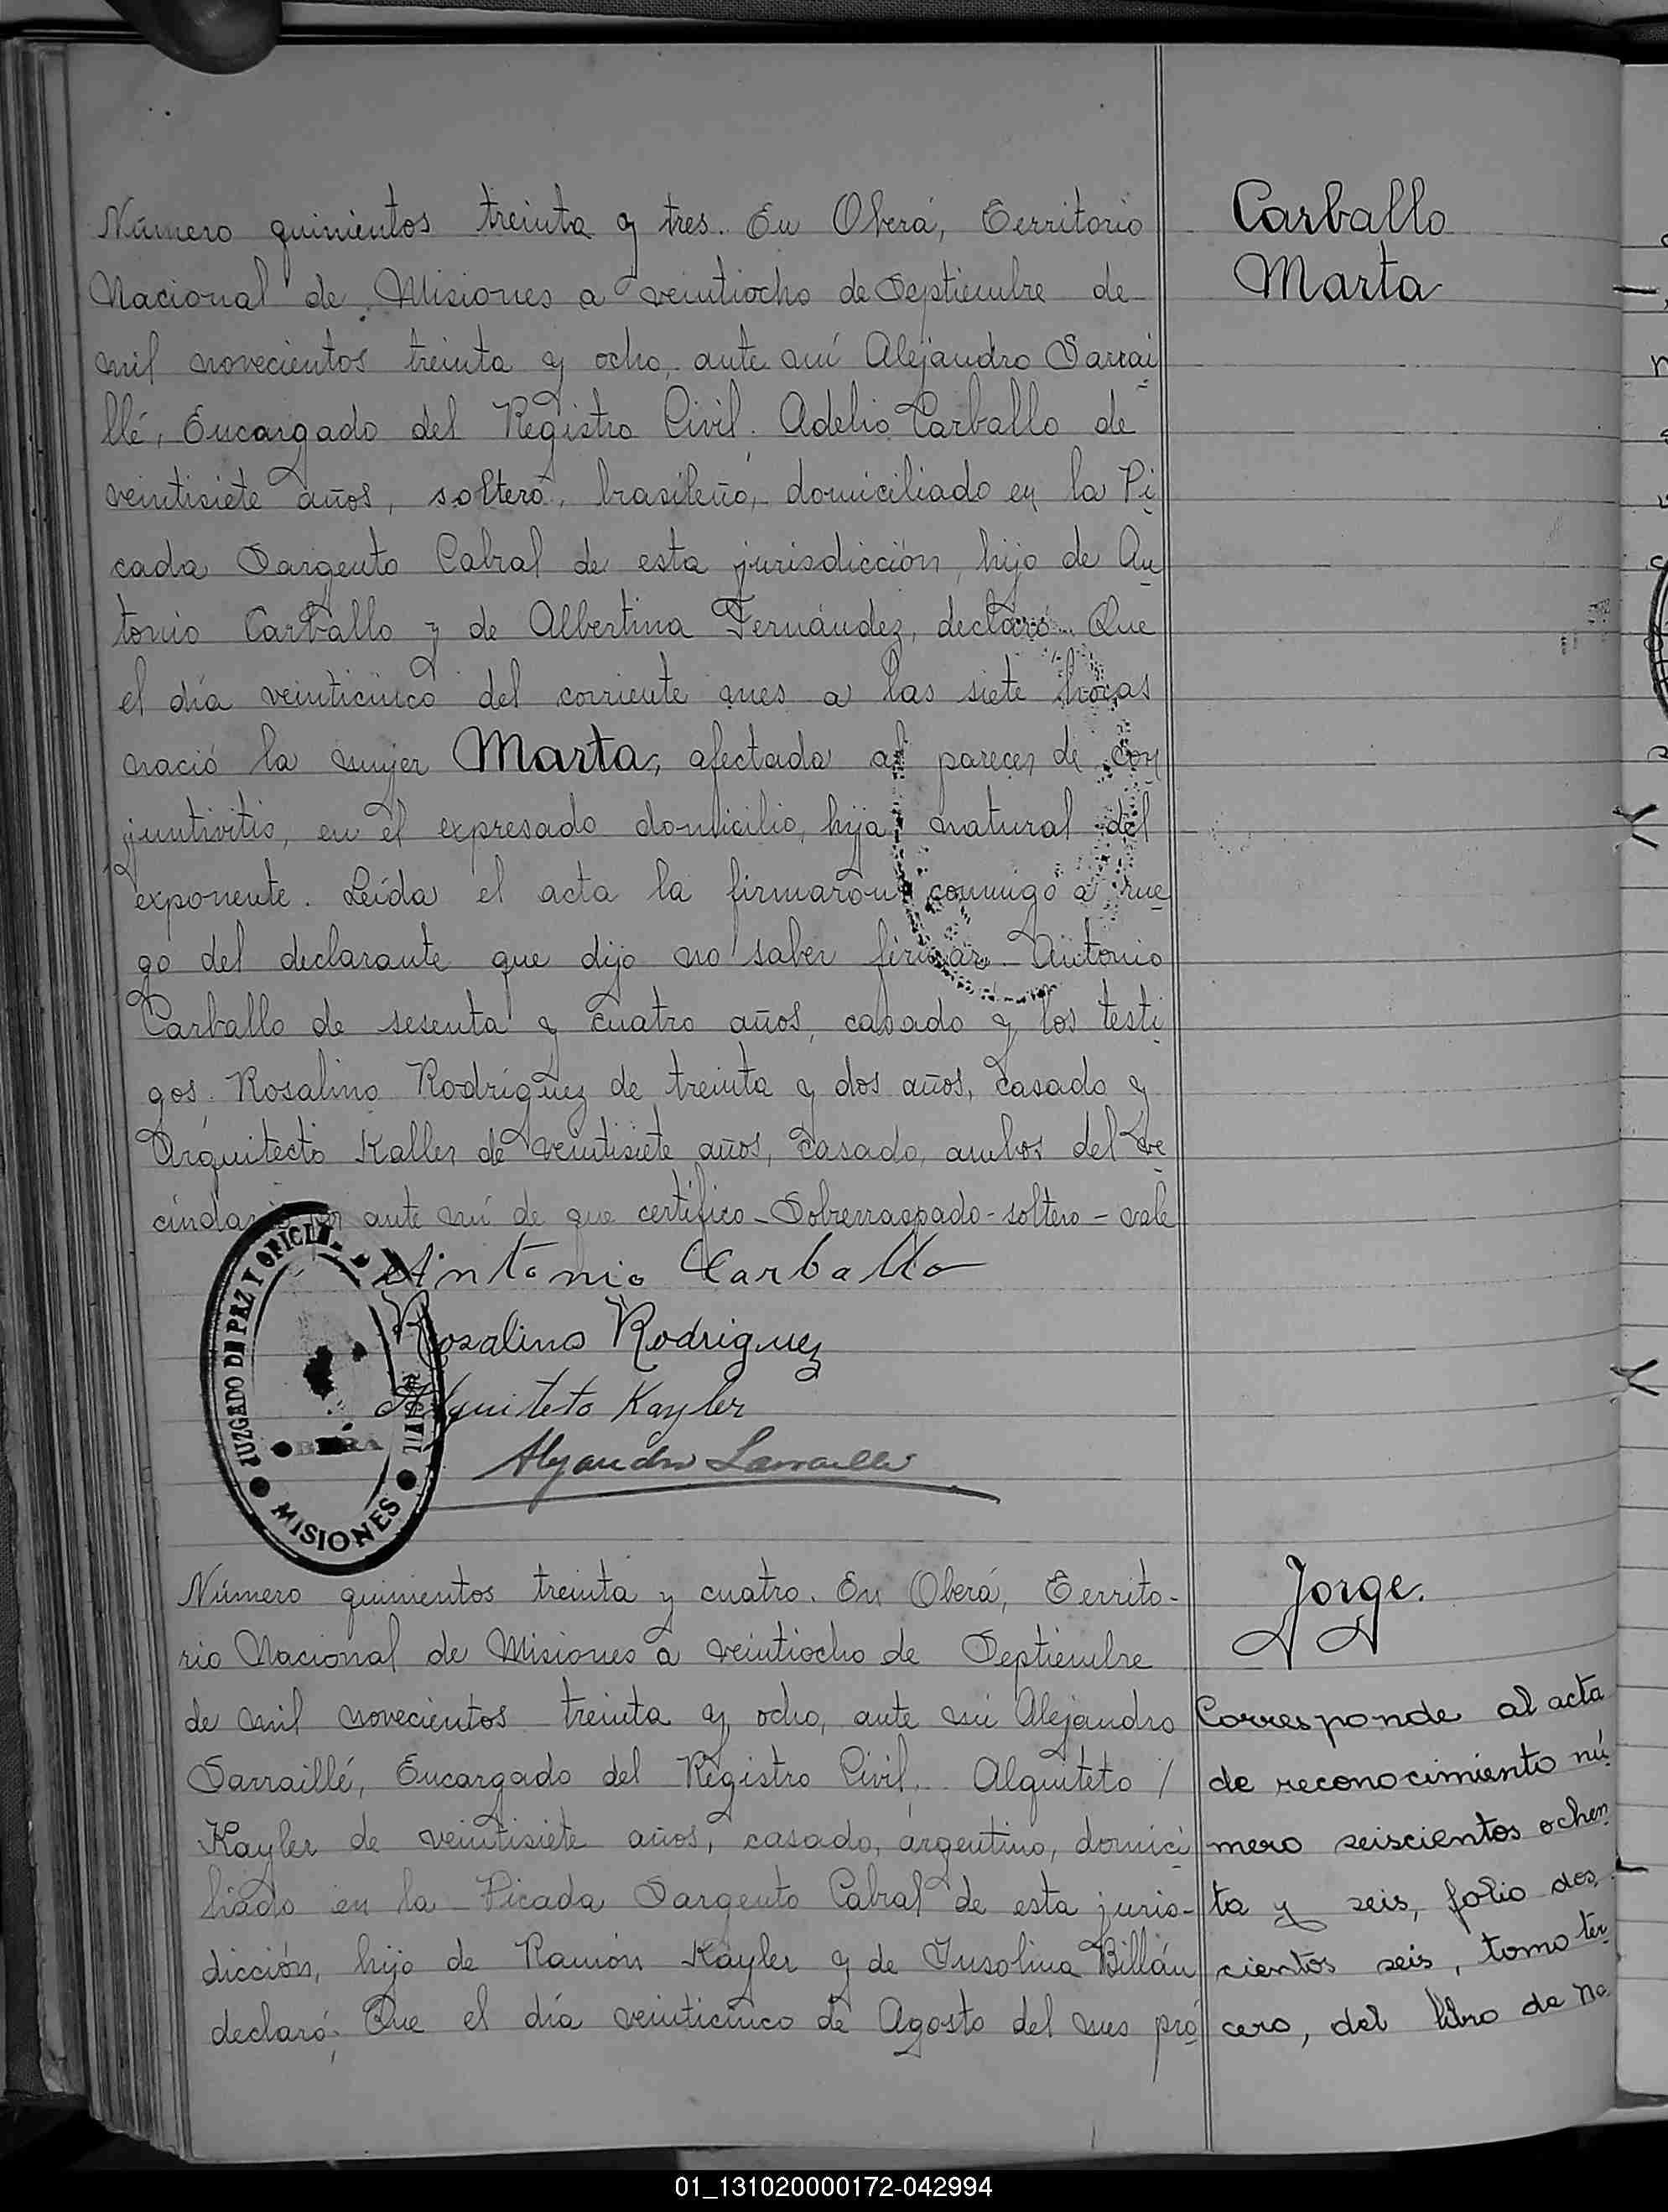 Número quinientos treinta y tres. En Oberá, Territorio
Nacional de Misiones a veintiocho de Septiembre de
mil novecientos treinta y ocho, ante mí Alejandro Sarrai
llé, Encargado del Registro Civil. Adelio Carballo de
veintisiete años, soltero, brasileño, domiciliado en la Pi
cada Sargento Cabral de esta jurisdicción, hijo de An
tonio Carballo y de Albertina Fernández, declaró: Que
el día veinticinco del corriente mes a las siete horas
nació la mujer Marta, afectada al parecer de con
juntivitis, en el expresado domicilio, hija natural del
exponente. Leída el acta la firmaron conmigo a rue
go del declarante que dijo no saber firmar Antonio
Carballo de sesenta y cuatro años, casado y los testi
gos. Rosalino Rodríguez de treinta y dos años, casado y
Arquitecto Kaller de veintisiete años, casado, ambos del ve
cindario por ante mí de que certifico - Sobrerraspado - soltero - vale
Antonio Carballo
Rosalino Rodriguez
Alquiteto Kayler
Alejandro Sarraillé
JUZGADO DE PAZ Y OFICI
OBERÁ
MISIONES
Número quinientos treinta y cuatro. En Oberá, Territo-
rio Nacional de Misiones a veintiocho de Septiembre
de mil novecientos treinta y ocho, ante mí Alejandro
Sarraillé, Encargado del Registro Civil. Alquiteto /
Kayler de veintisiete años, casado, argentino, domici
liado en la Picada Sargento Cabral de esta juris-
dicción, hijo de Ramón Kayler y de Insolina Billán
declaró: Que el día veinticinco de Agosto del mes pró
Carballo
Marta
Jorge.
Corresponde al acta
de reconocimiento nú
mero seiscientos ochen
ta y seis, folio dos
cientos seis, tomo ter
cero, del libro de na
01_131020000172-042994